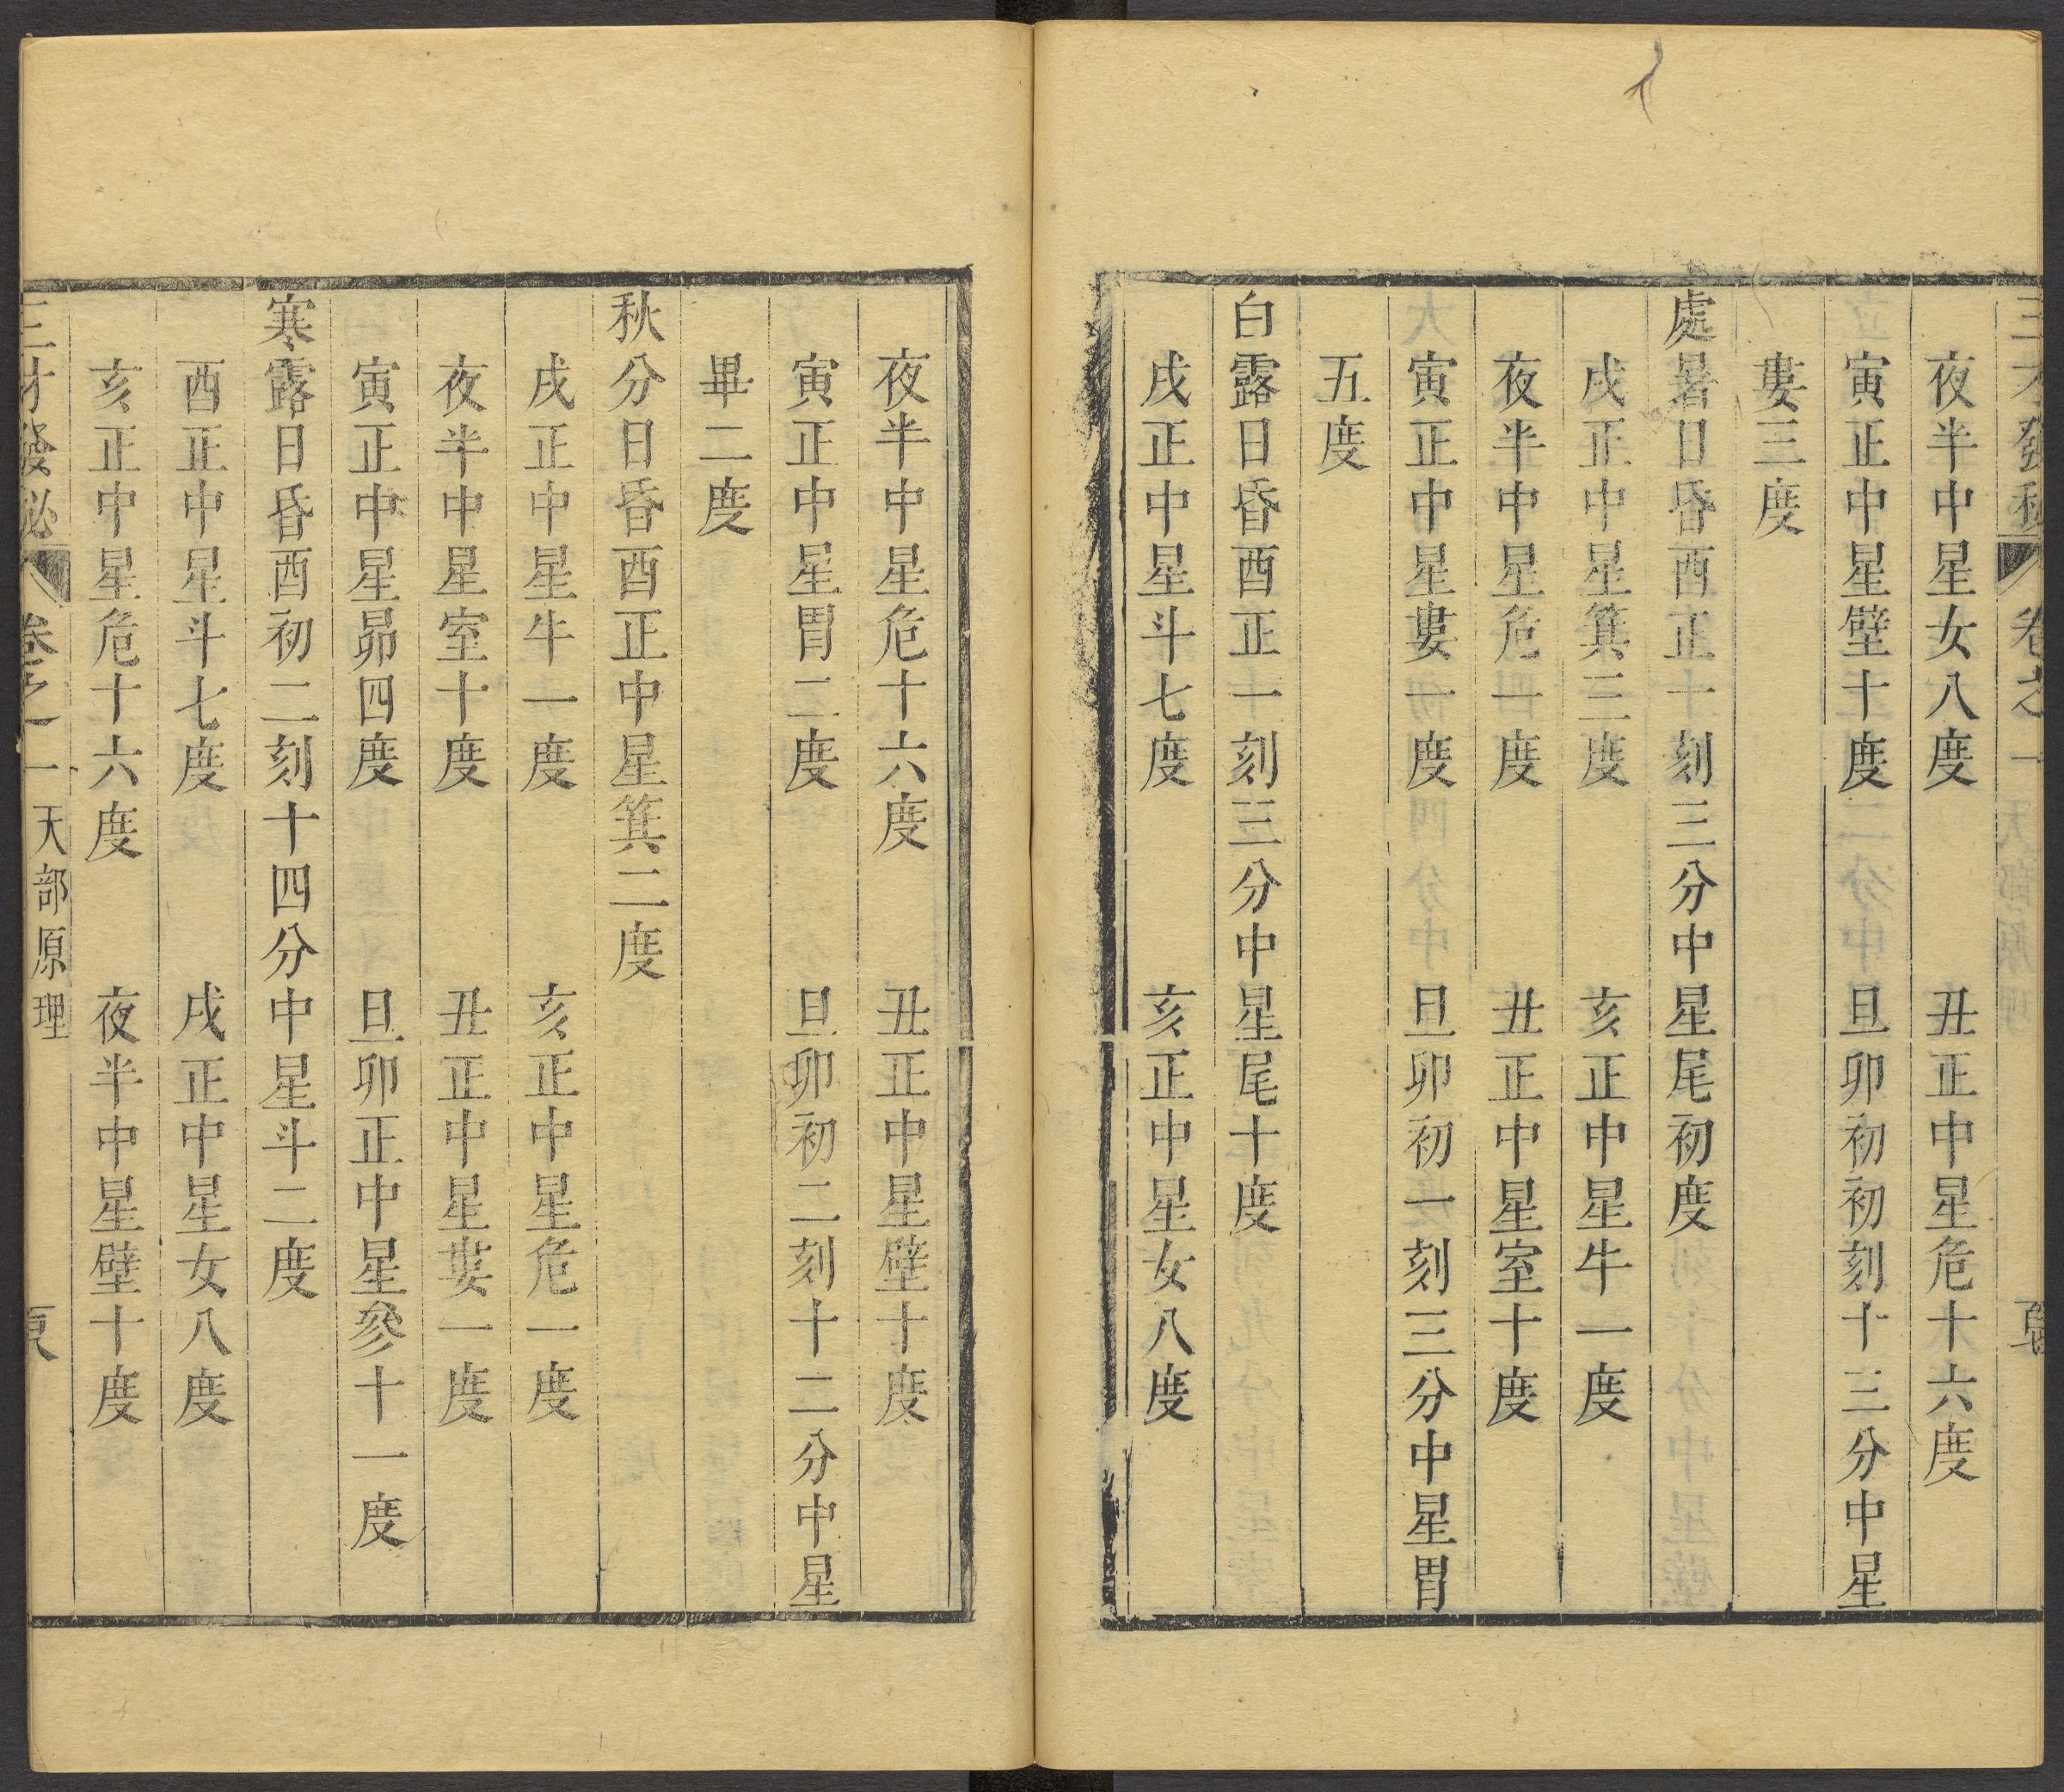 三才發秘 卷之一
夜半中星女八度 丑正中星危十六度
寅正中星壁十度 旦卯初初刻十三分中星
婁三度
處暑日昏酉正十刻三分中星尾初度
戌正中星箕三度 亥正中星牛一度
夜半中星危一度 丑正中星室十度
寅正中星婁一度 旦卯初一刻三分中星胃
五度
白露日昏酉正一刻三分中星尾十度
戌正中星斗七度 亥正中星女八度
夜半中星危十六度 丑正中星壁十度
寅正中星胃二度 旦卯初二刻十二分中星
畢二度
秋分日昏酉正中星箕二度
戌正中星牛一度 亥正中星危一度
夜半中星室十度 丑正中星婁一度
寅正中星昴四度 旦卯正中星參十一度
寒露日昏酉初二刻十四分中星斗二度
酉正中星斗七度 戌正中星女八度
亥正中星危十六度 夜半中星壁十度
三才發秘 卷之一 天部原理